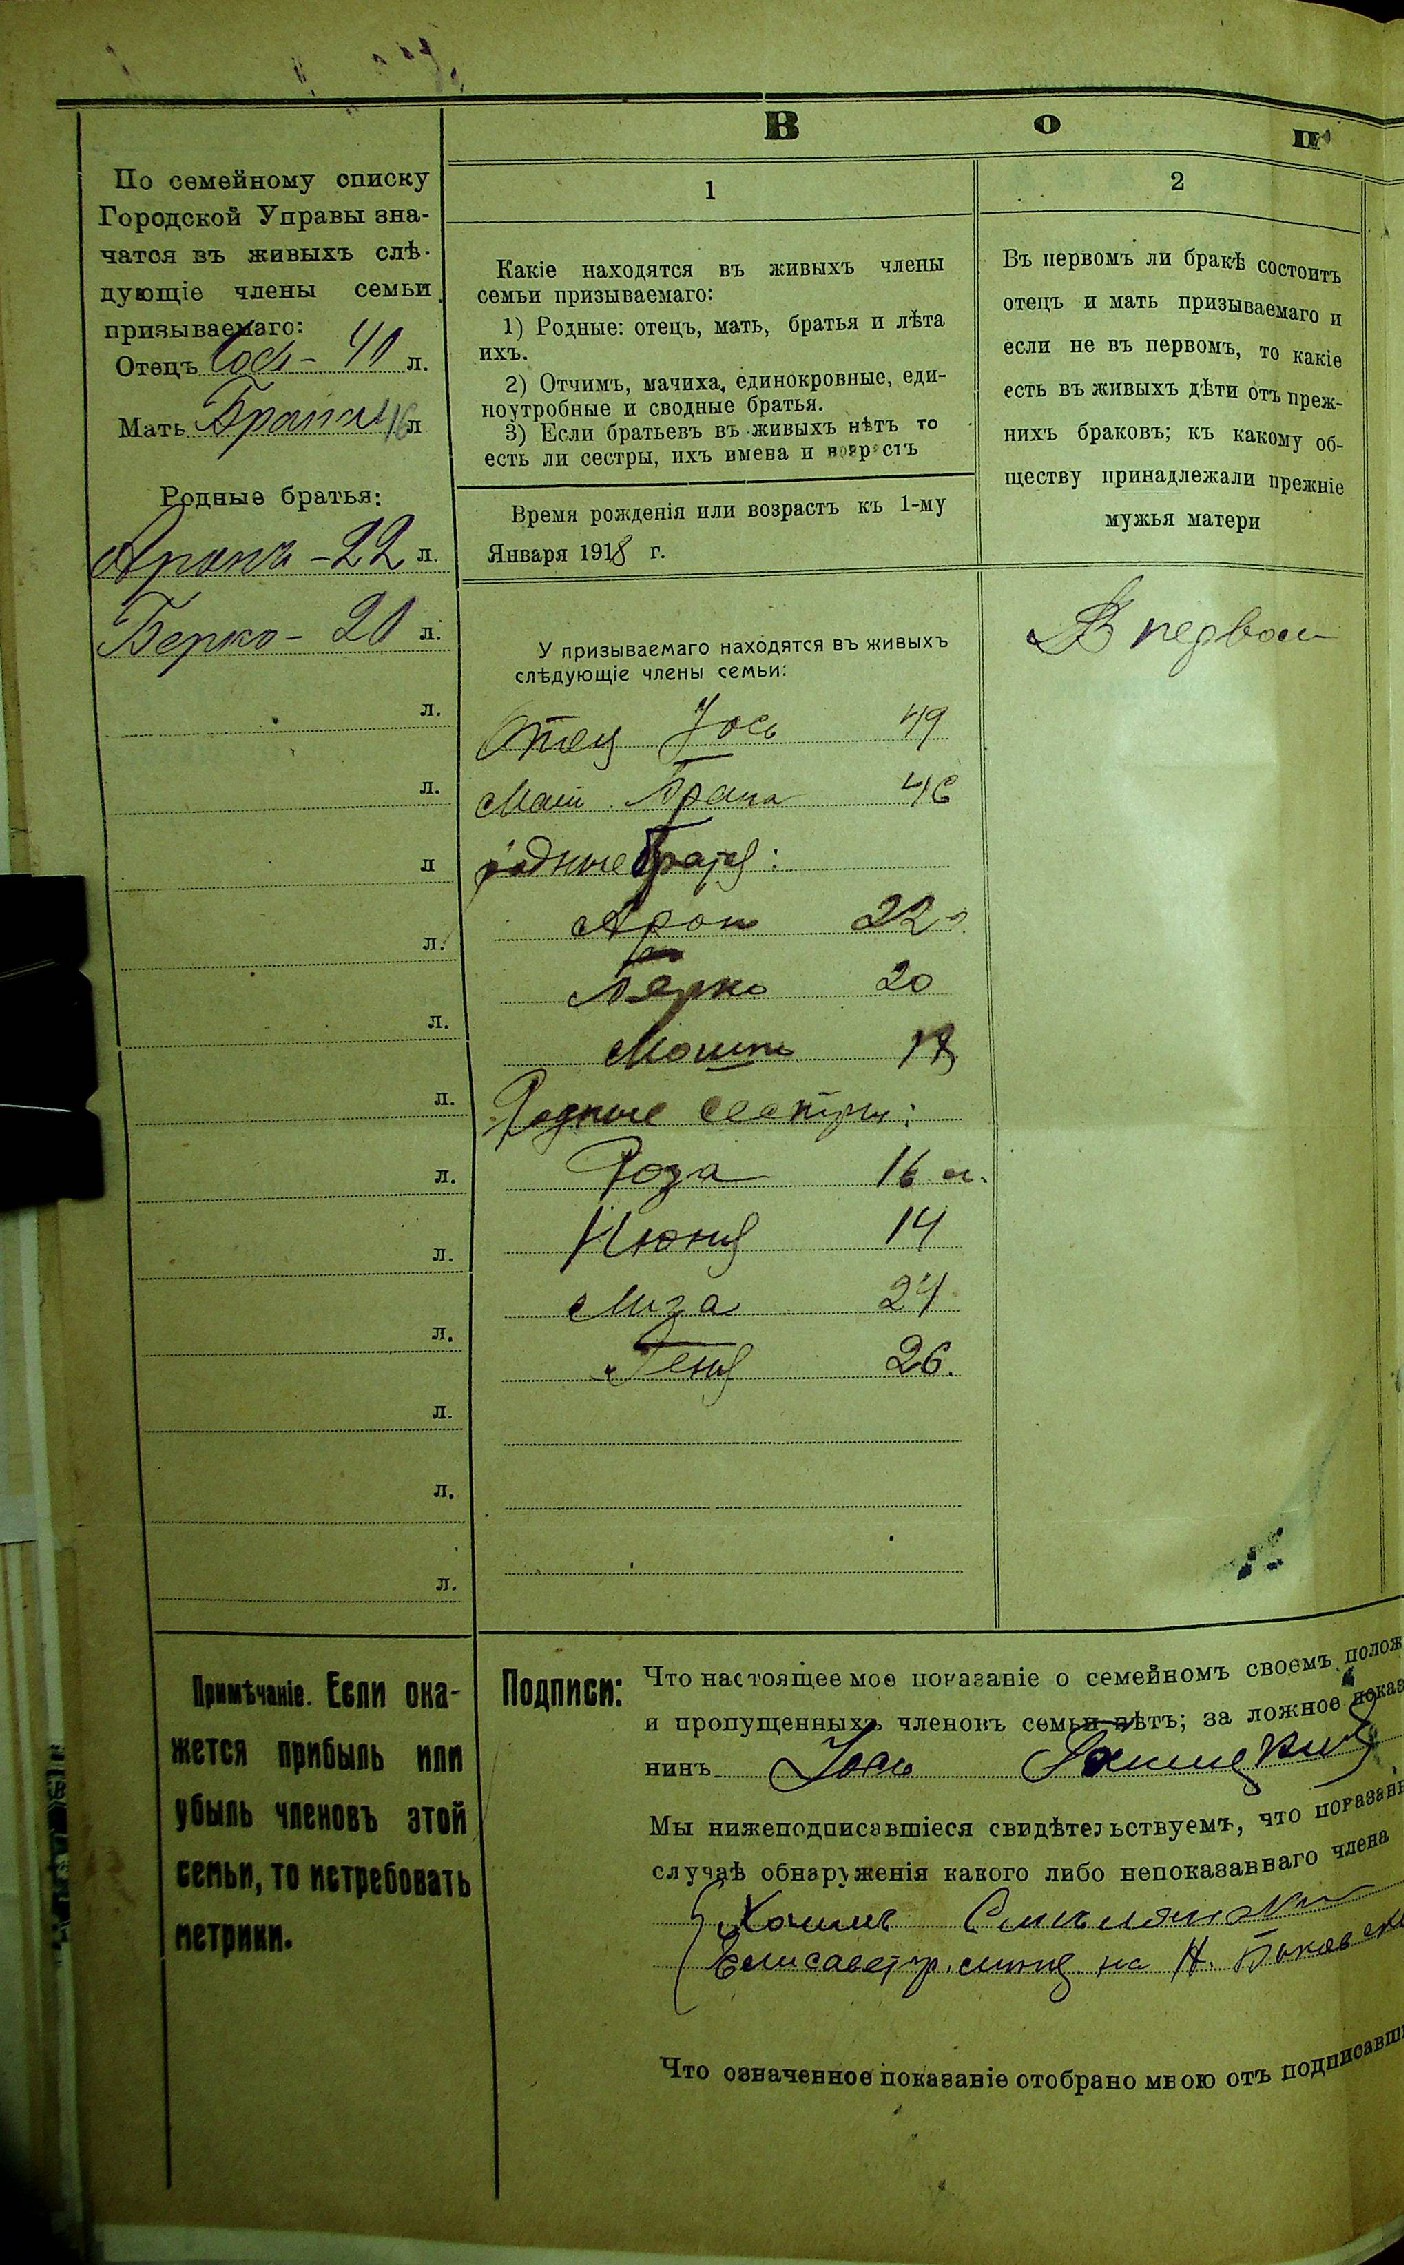 В о п
По семейному списку
Городской Управы зна-
чатся въ живыхъ слѣ-
дующіе члены семьи
призываемаго:
Отецъ 40 л.
Мать 46 л
Родные братья:
Аронъ - 22 л.
Берко - 20 л.
л.
л.
л
л.
л.
л.
л.
л.
л.
л.
л.
л.
1
Какіе находятся въ живыхъ члены
семьи призываемаго:
1) Родные: отецъ, мать, братья и лѣта
ихъ.
2) Отчимъ, мачиха, единокровные, еди-
ноутробные и сводные братья.
3) Если братьевъ въ живыхъ нѣтъ то
есть ли сестры, ихъ имена и возрастъ
Время рожденія или возрастъ къ 1-му
Января 1918 г.
У призываемаго находятся въ живыхъ
слѣдующіе члены семьи:
Отец Іось 49
Мать 46
родные братя:
Арон 22 л.
Берко 20
18
Родные сестры:
Роза 16 л.
Нюня 14
Лиза 24
Геня 26.
2
Въ первомъ ли бракѣ состоитъ
отецъ и мать призываемаго и
если не въ первомъ, то какіе
есть въ живыхъ дѣти отъ преж-
нихъ браковъ; къ какому об-
ществу принадлежали прежніе
мужья матери
В первом
Примѣчаніе. Если ока-
жется прибыль или
убыль членовъ этой
семьи, то истребовать
метрики.
Подписи:
Что настоящее мое показаніе о семейномъ своемъ полож
и пропущенныхъ членовъ семьи нѣтъ; за ложное показ
нинъ Іось
Мы нижеподписавшіеся свидѣтельствуемъ, что показані
случаѣ обнаруженія какого либо непоказаннаго члена
на Н.
Что означенное показаніе отобрано мною отъ подписавши